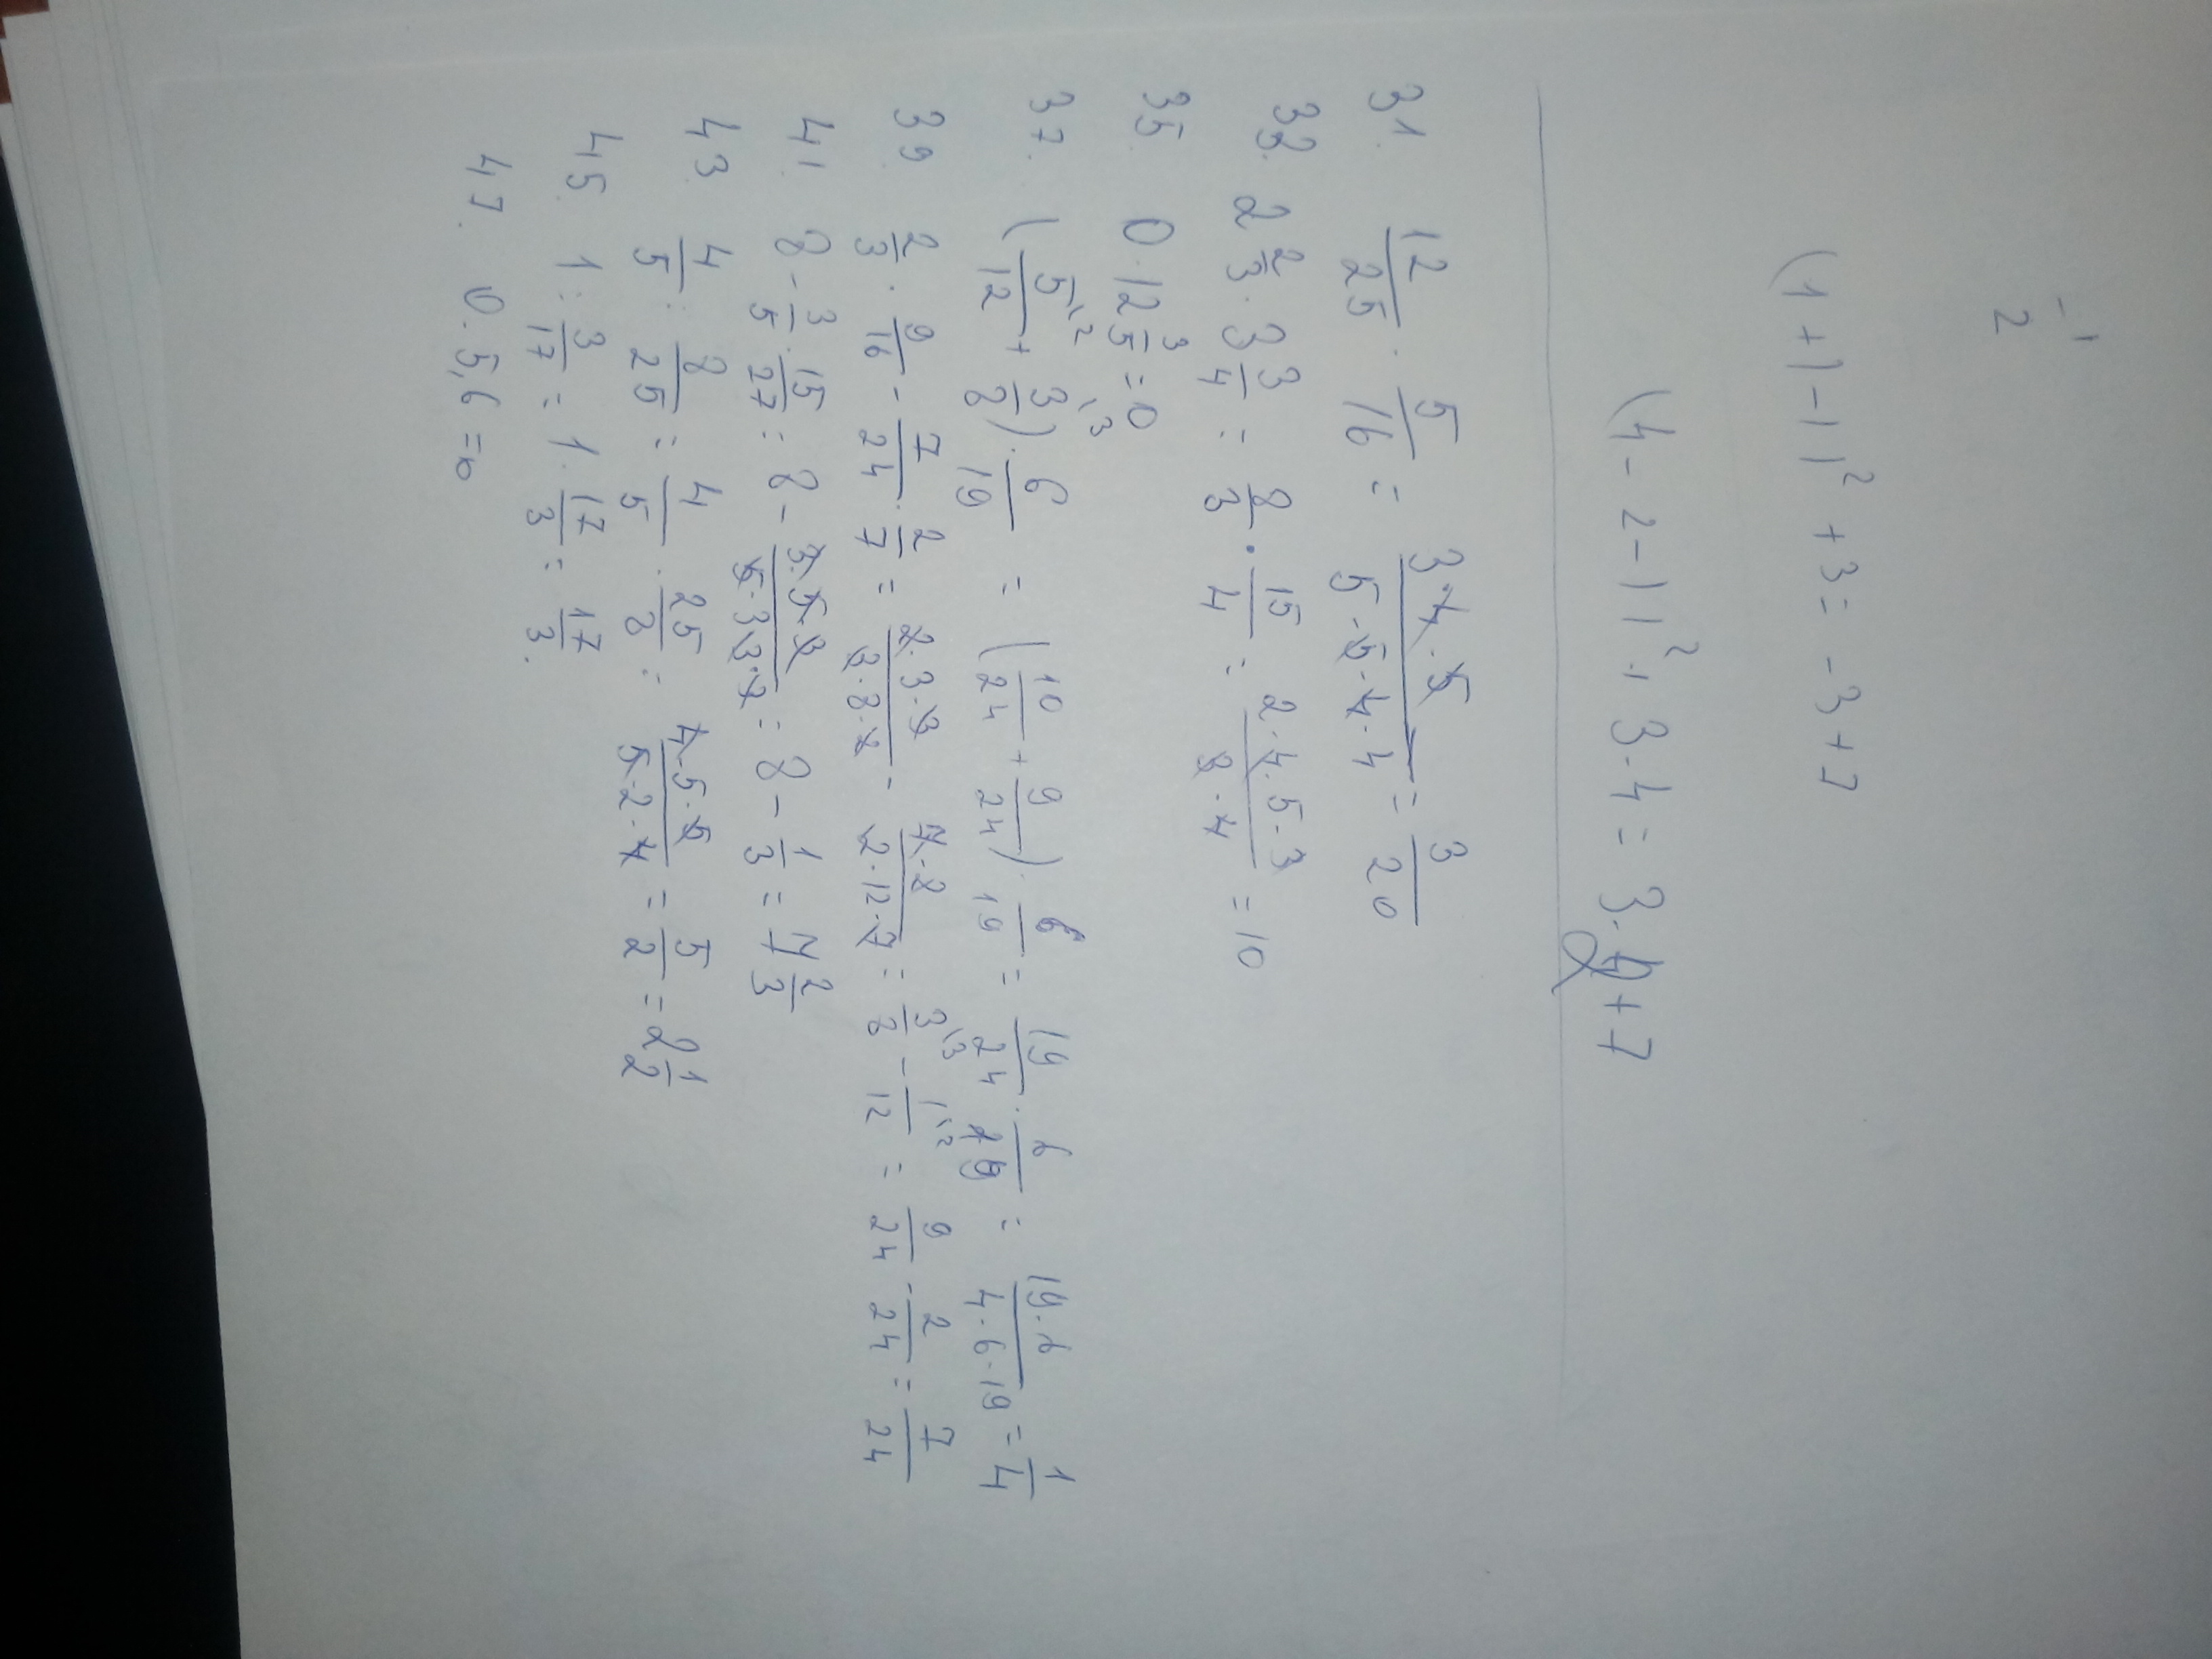 -1/2
(1+|-1|)² +3 = -3+7
(4-2-1|²+3·4 = 3·4+7
31. 12/25 · 5/16 = 3·4·5/5·5·4·4 = 3/20
33. 2 2/3 · 3 3/4 = 8/3 · 15/4 = 2·4·5·3/3·4 = 10
35. 0·12 3/5 = 0
37. (5\2/12 + 3\3/8) · 6/19 = (10/24 + 9/24) · 6/19 = 19/24 · 6/19 = 19·6/4·6·19 = 1/4
39. 2/3 · 9/16 - 7/24 · 2/7 = 2·3·3/3·8·2 - 7·2/2·12·7 = 3\3/8 - 1\2/12 = 9/24 - 2/24 = 7/24
41. 8 - 3/5 · 15/27 = 8 - 3·5·3/5·3·3·3 = 8 - 1/3 = 7 2/3
43. 4/5 : 8/25 = 4/5 · 25/8 = 4·5·5/5·2·4 = 5/2 = 2 1/2
45. 1 : 3/17 = 1 · 17/3 = 17/3.
47. 0 · 5,6 = 0